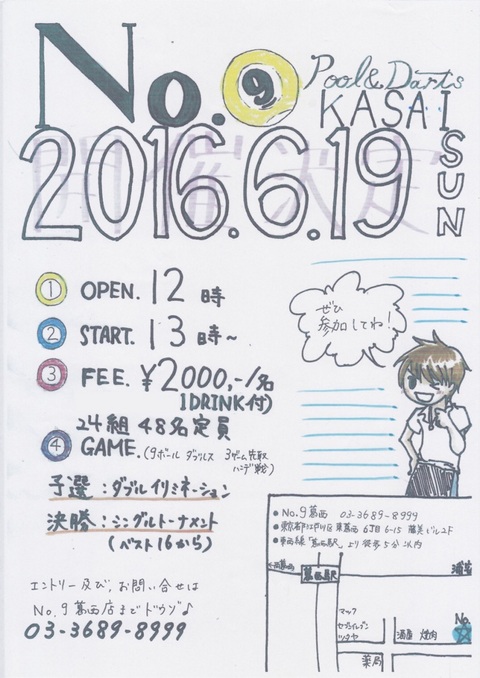 No. 9 Pool & Darts
KASAI
2016.6.19 SUN
開催決定
① OPEN. 12時
② START. 13時~
③ FEE. ¥2000,-/名
1DRINK付)
24組 48名定員
④ GAME. (9ボール ダブルス 3ゲーム先取
ハンデ戦)
ぜひ
参加してね!
予選:ダブルイリミネーション
決勝:シングルトーナメント
(ベスト16から)
エントリー及び、お問い合せは
No.9葛西店までドウゾ♪
03-3689-8999
●No.9葛西 03-3689-8999
●東京都江戸川区東葛西6丁目6-15 ビル2F
●東西線「葛西駅」より徒歩5分以内
葛西駅
浦安
マック
セブンイレブン
ツタヤ
酒蔵 焼肉
No.9
薬局